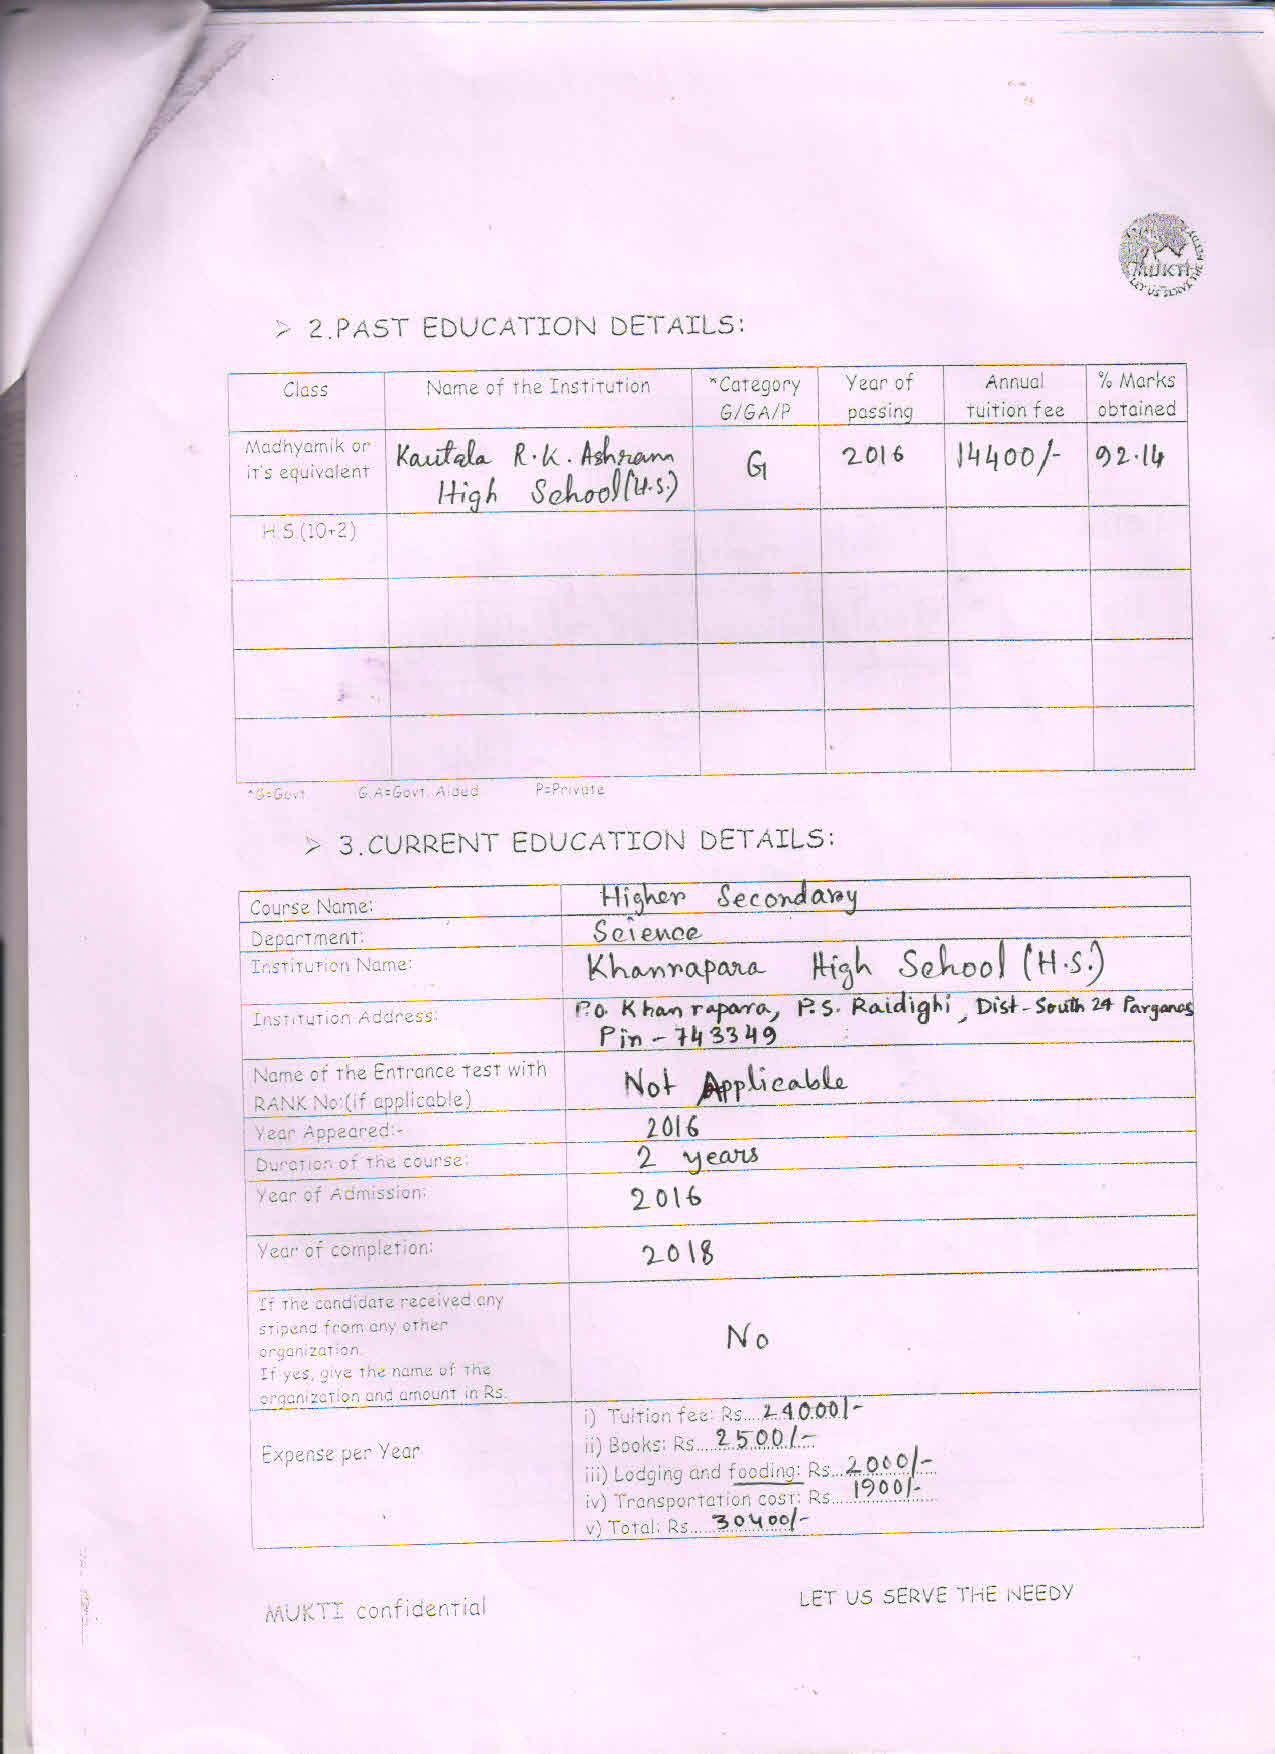 MUKTI
LET US SERVE THE NEEDY
> 2.PAST EDUCATION DETAILS:
Class Name of the Institution *Category G/GA/P Year of passing Annual tuition fee % Marks obtained
Madhyamik or it's equivalent Kautala R.K. Ashram High School (H.S.) G 2016 14400/- 92.14
H.S.(10+2)
*G=Govt G.A=Govt. Aided P=Private
> 3.CURRENT EDUCATION DETAILS:
Course Name: Higher Secondary
Department: Science
Institution Name: Khanrapara High School (H.S.)
Institution Address: P.O. Khanrapara, P.S. Raidighi, Dist-South 24 Parganas
Pin - 743349
Name of the Entrance test with
RANK No:(if applicable) Not Applicable
Year Appeared:- 2016
Duration of the course: 2 years
Year of Admission: 2016
Year of completion: 2018
If the candidate received any
stipend from any other
organization.
If yes, give the name of the
organization and amount in Rs. No
Expense per Year
i) Tuition fee: Rs....24000/-
ii) Books: Rs....2500/-
iii) Lodging and fooding: Rs...2000/-
iv) Transportation cost: Rs...1900/-
v) Total: Rs....30400/-
MUKTI confidential LET US SERVE THE NEEDY